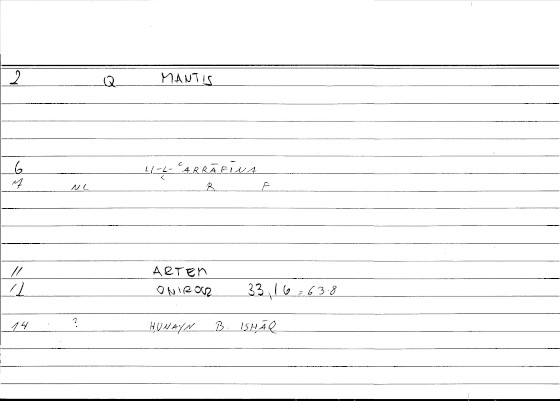 2 Q MANTIS
6 LI-L-ʿARRĀFĪNA
7 NL R F
11 ARTEM
12 ONIROS 33,16 = 63.8
14 ? HUNAYN B. ISḤĀQ